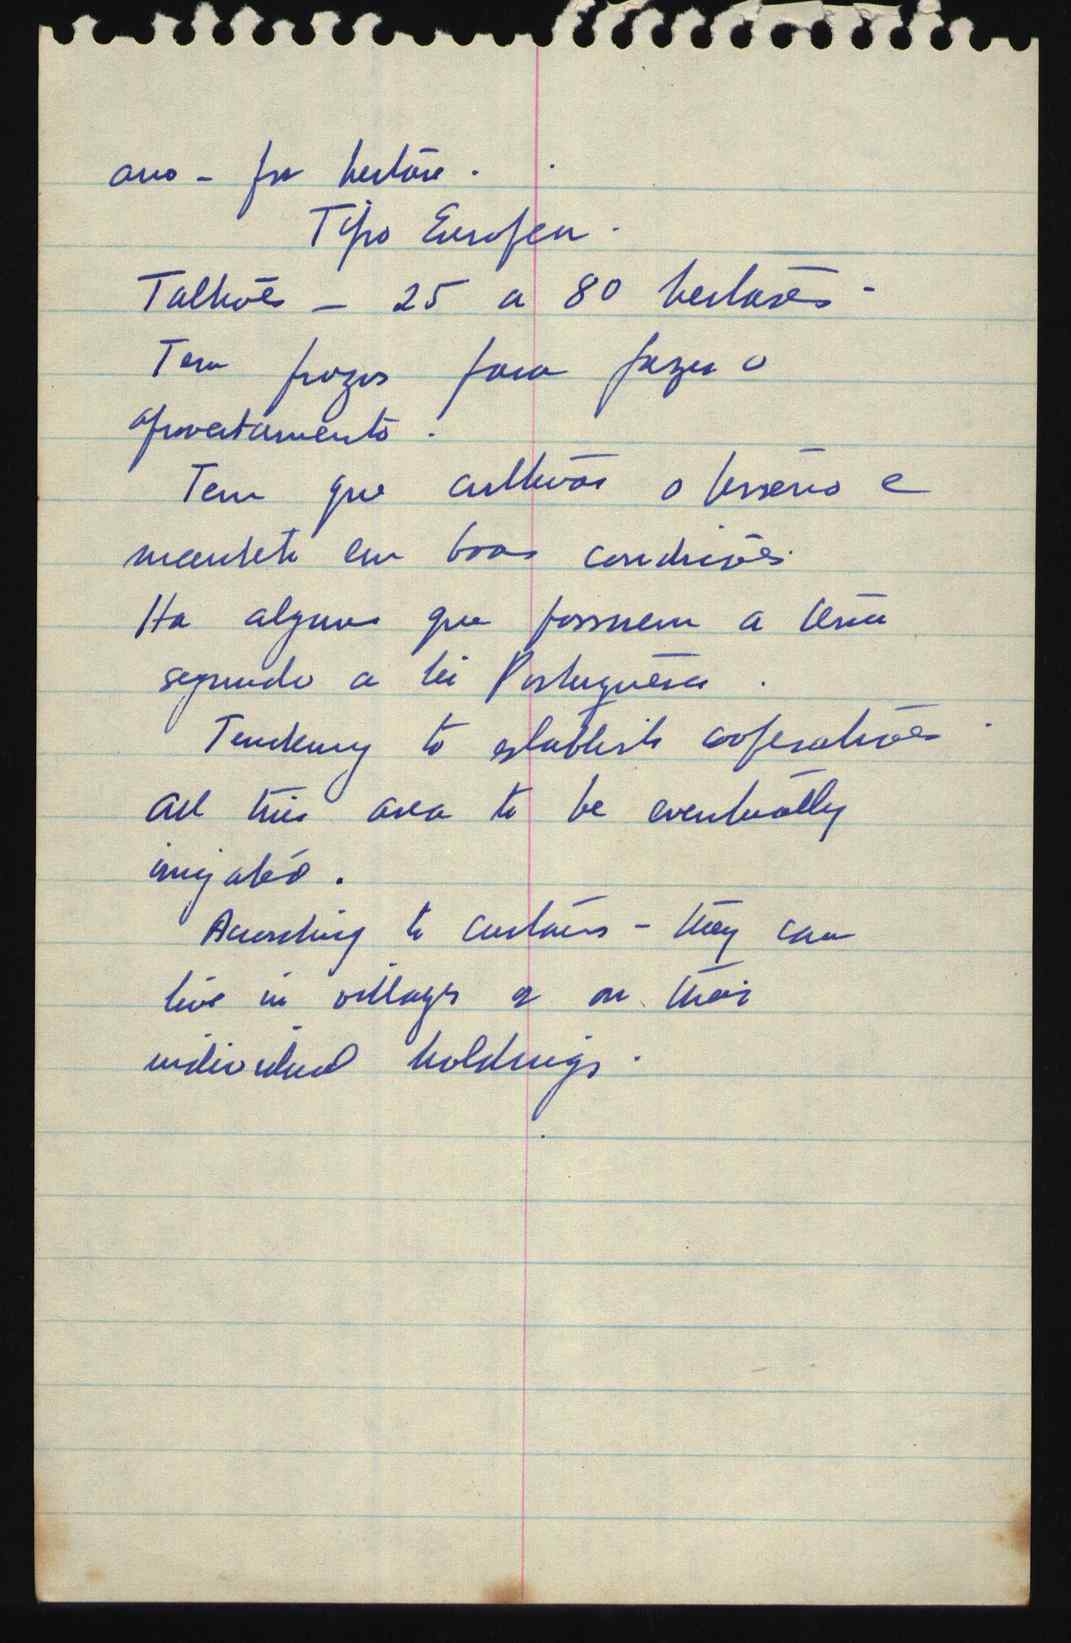 ano - por hectare.
Tipo Europeu.
Talhões - 25 a 80 hectares -
Tem prazos para fazer o
aproveitamento.
Tem que cultivar o terreno e
mantê-lo em boas condições.
Ha alguns que possuem a terra
segundo a lei Portuguesa.
Tendency to establish cooperatives.
All this area to be eventually
irrigated.
According to customs - they can
live in villages or on their
individual holdings.